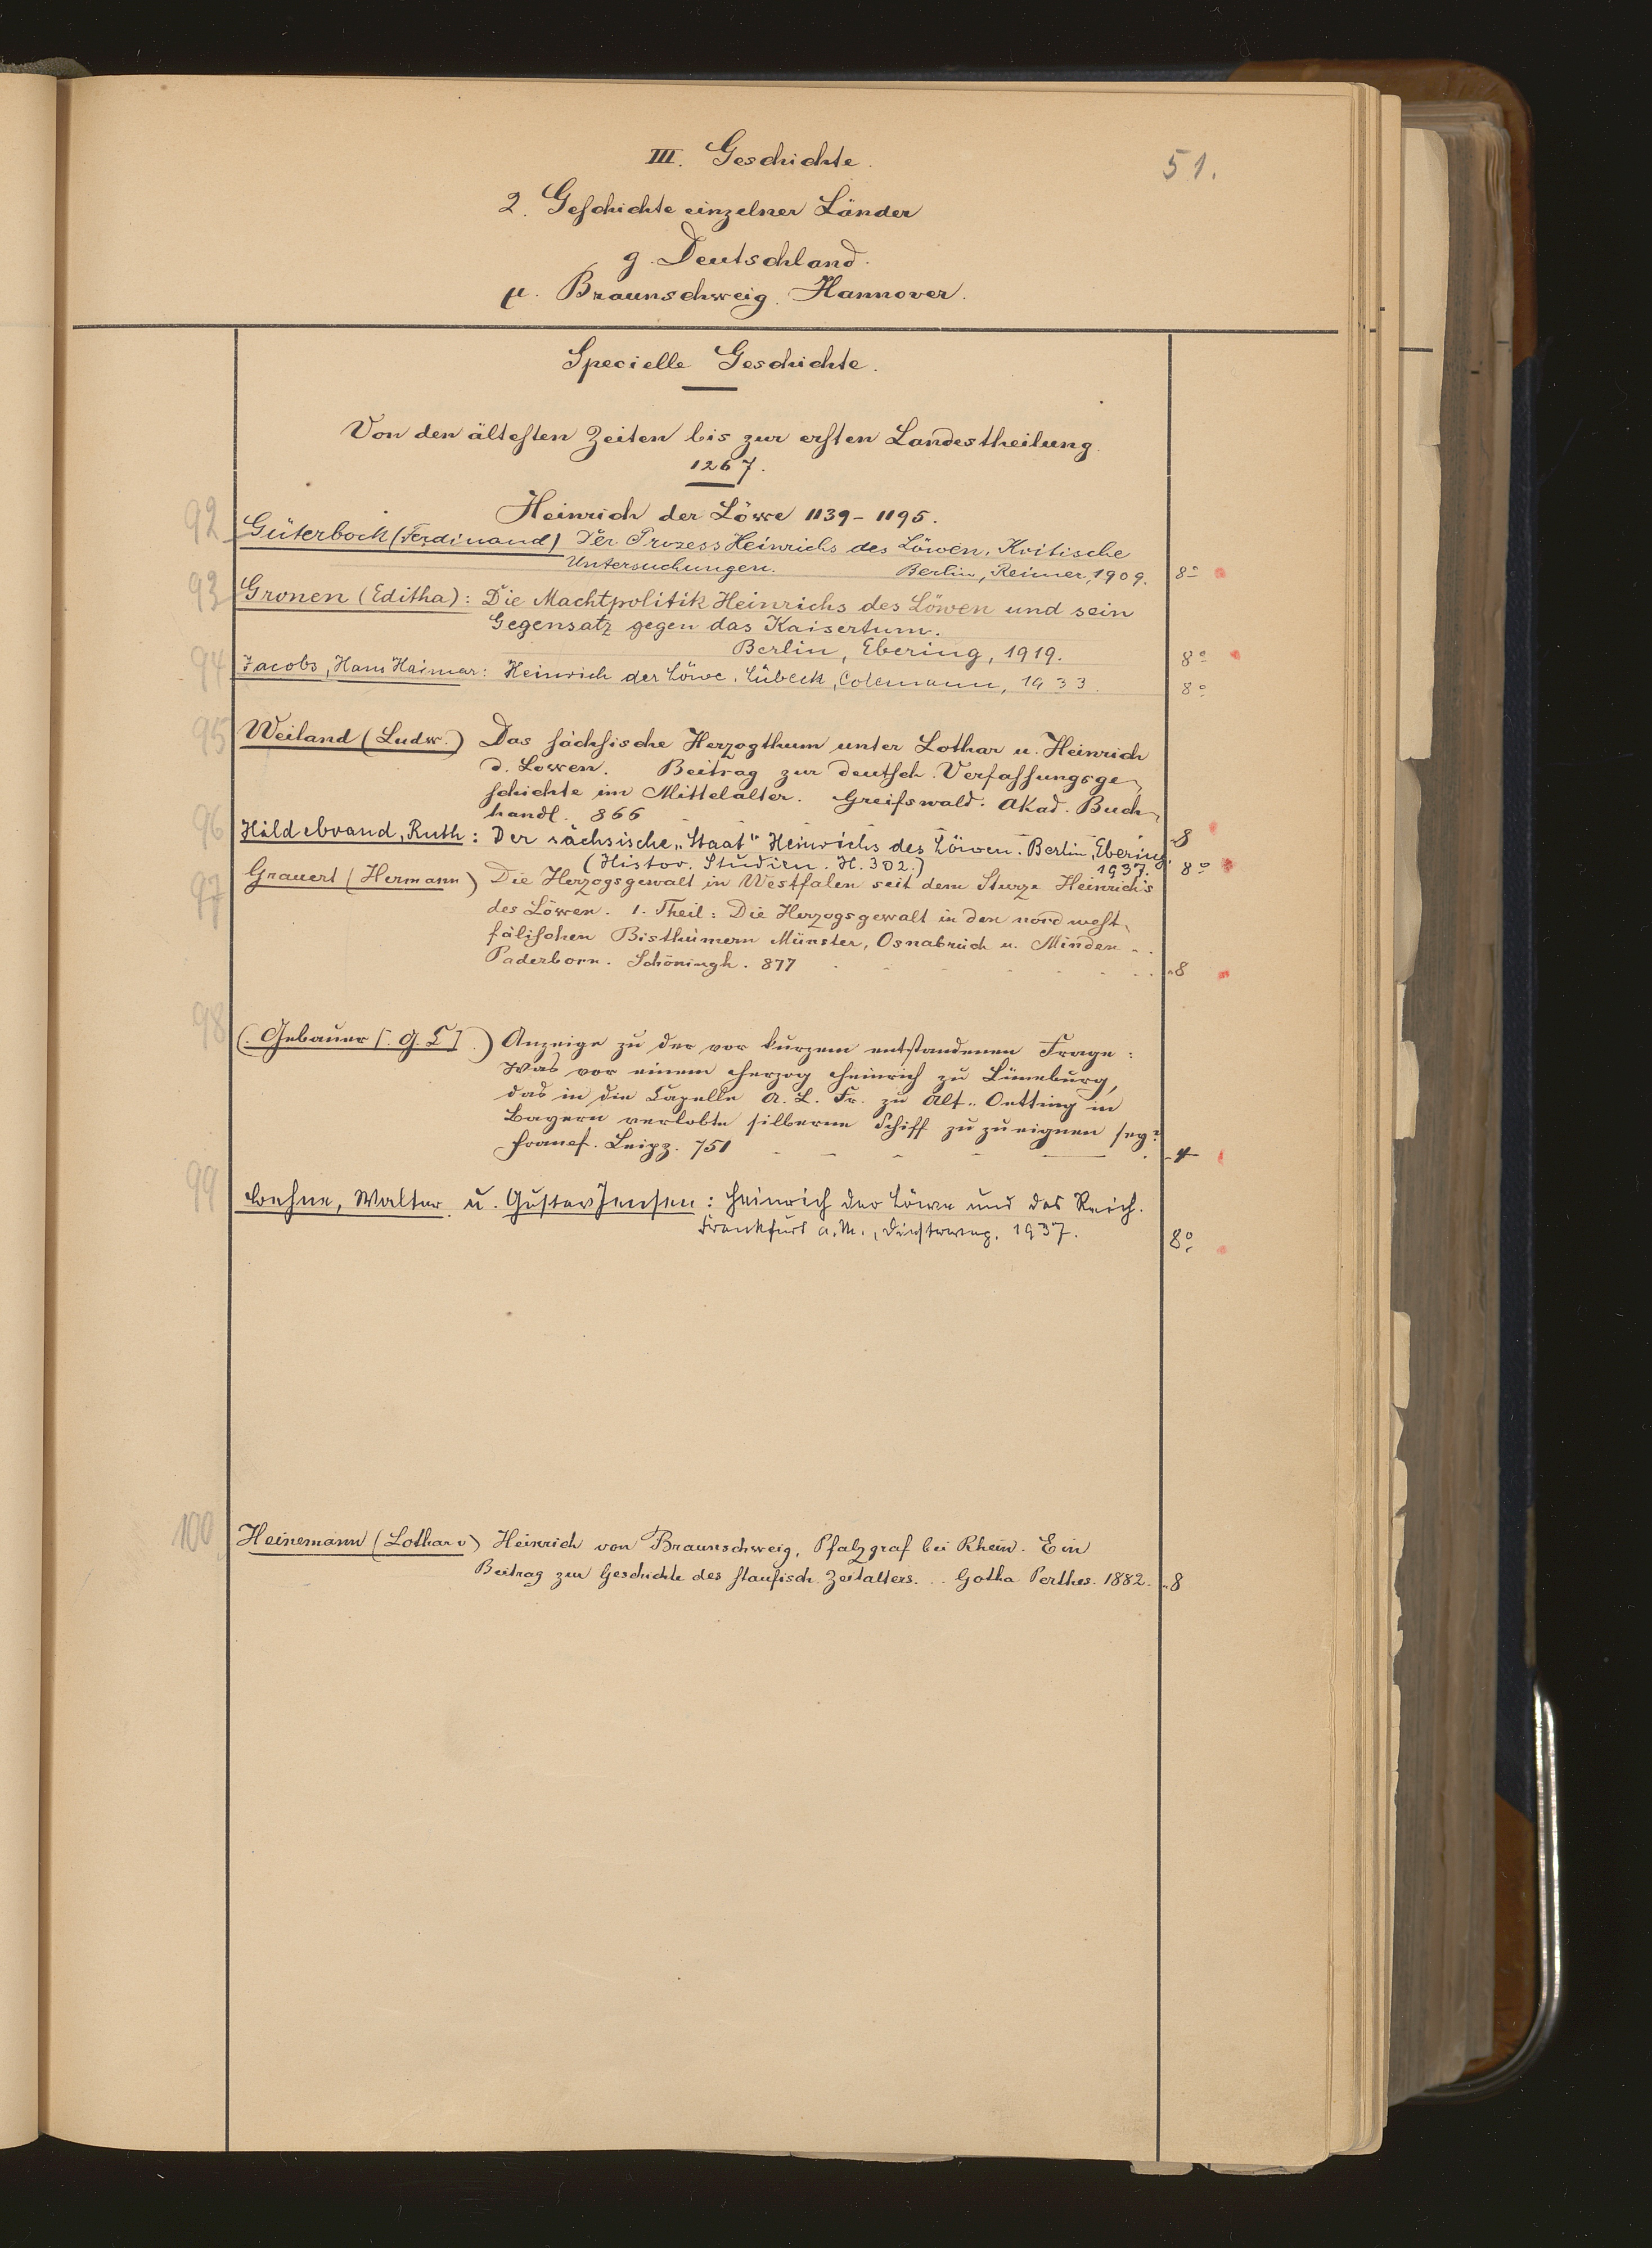 III. Geschichte.
51.
2. Geschichte einzelner Länder
g. Deutschland.
µ. Braunschweig. Hannover.
Specielle Geschichte.
Von den ältesten Zeiten bis zur ersten Landestheilung.
1267.
Heinrich der Löwe 1139-1195.
92 Güterbock (Ferdinand) Der Prozess Heinrichs des Löwen. Kritische
Untersuchungen. Berlin, Reimer, 1909. 8°
93 Gronen (Editha): Die Machtpolitik Heinrichs des Löwen und sein
Gegensatz gegen das Kaisertum.
Berlin, Ebering, 1919. 8°
94 Jacobs, Hans Haimar: Heinrich der Löwe. Lübeck, Colemann, 1933. 8°
95 Weiland (Ludw.) Das sächsische Herzogthum unter Lothar u. Heinrich
d. Löwen. Beitrag zur deutsch. Verfassungsge-
schichte im Mittelalter. Greifswald. Akad. Buch-
handl. 866 8
96 Hildebrand, Ruth: Der sächsische „Staat" Heinrichs des Löwen. Berlin, Ebering,
(Histor. Studien. H. 302.) 1937. 8°
97 Grauert (Hermann) Die Herzogsgewalt in Westfalen seit dem Sturze Heinrich's
des Löwen. 1. Theil: Die Herzogsgewalt in den nordwest-
fälischen Bisthümern Münster, Osnabrück u. Minden.
Paderborn. Schöningh. 877 8
98 (. Gebauer [. G. C] .) Anzeige zu der vor kurzem entstandenen Frage:
Was vor einem Herzog Heinrich zu Lüneburg,
das in die Capelle A. L. Fr. zu Alt-Oetting in
Bayern verlobte silberne Schiff zuzueignen sey?
Francf. Leipz. 751 4
99 Lehne, Walter u. Gustav Jensen: Heinrich der Löwe und das Reich.
Frankfurt a. M., Diesterweg. 1937. 8°
100 Heinemann (Lothar v) Heinrich von Braunschweig, Pfalzgraf bei Rhein. Ein
Beitrag zur Geschichte des staufisch. Zeitalters. .. Gotha Perthes. 1882. 8